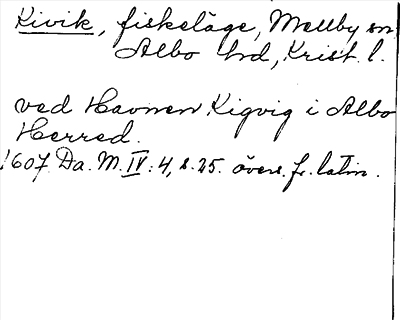 Kivik, fiskeläge, Mellby sn
Albo hd, Krist. l.
ved Havnen Kigvig i Albo
Herred.
1607 Da. M. IV: 4, s. 25. övers. fr. latin.